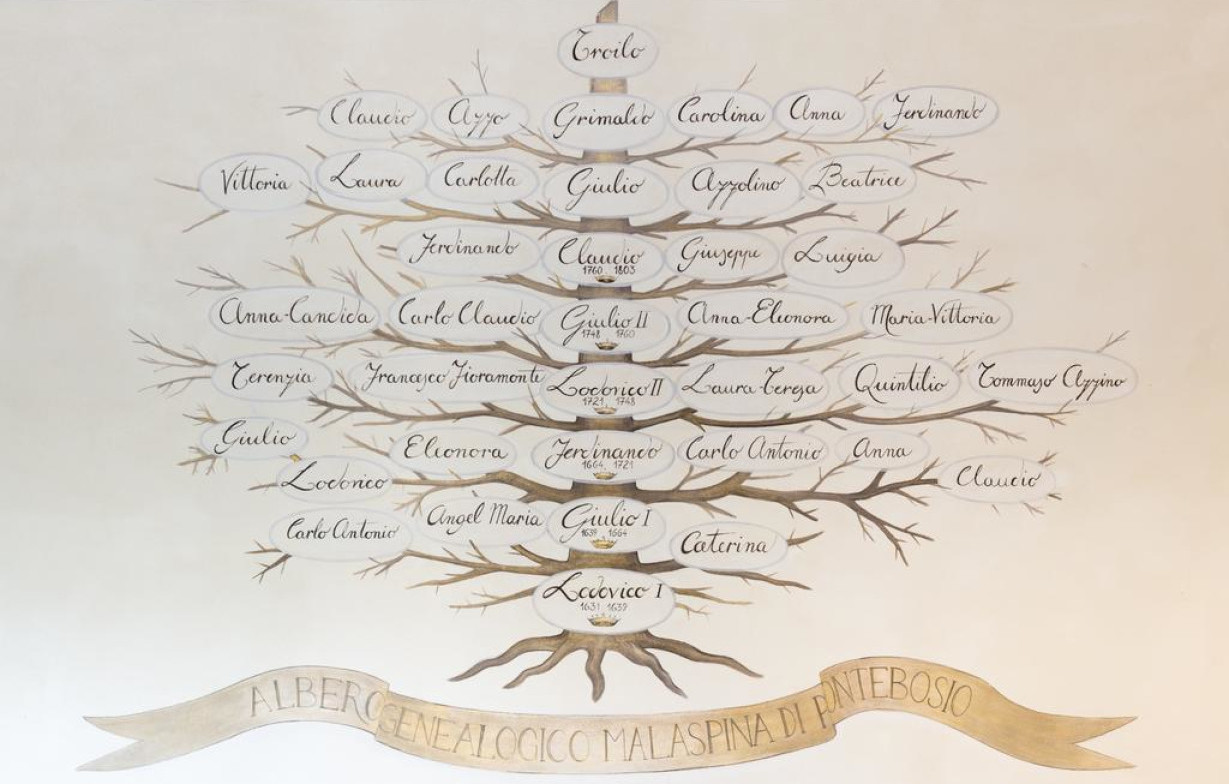 Troilo
Claudio Azzo Grimaldo Carolina Anna Ferdinando
Vittoria Laura Carlotta Giulio Azzolino Beatrice
Ferdinando Claudio Giuseppe Luigia
1760 1803
Anna-Candida Carlo Claudio Giulio II Anna-Eleonora Maria-Vittoria
1748 1760
Terenzia Francesco Fioramonte Lodovico II Laura-Tereza Quintilio Tommaso Azzino
1721 1748
Giulio Eleonora Ferdinando Carlo Antonio Anna
1664 1721
Lodovico Claudio
Carlo Antonio Angel Maria Giulio I Caterina
1639 1664
Lodovico I
1631 1639
ALBERO GENEALOGICO MALASPINA DI PONTEBOSIO